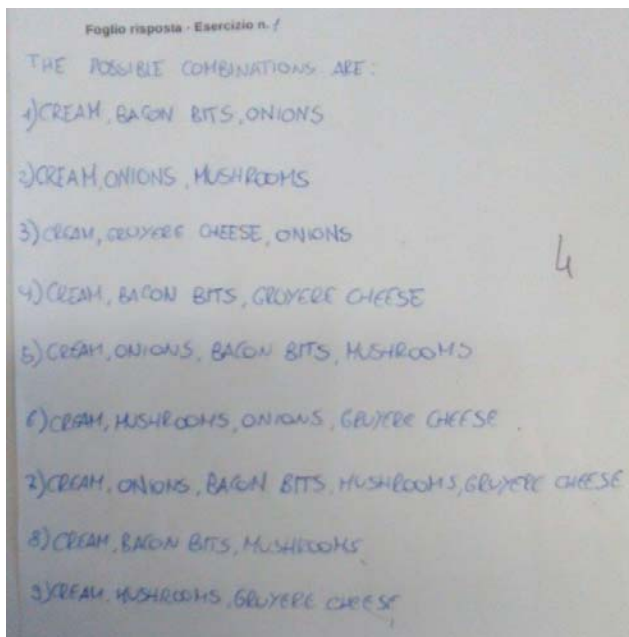 Foglio risposta - Esercizio n. 1
THE POSSIBLE COMBINATIONS ARE:
1) CREAM, BACON BITS, ONIONS
2) CREAM, ONIONS, MUSHROOMS
3) CREAM, GRUYERE CHEESE, ONIONS
4
4) CREAM, BACON BITS, GRUYERE CHEESE
5) CREAM, ONIONS, BACON BITS, MUSHROOMS
6) CREAM, MUSHROOMS, ONIONS, GRUYERE CHEESE
7) CREAM, ONIONS, BACON BITS, MUSHROOMS, GRUYERE CHEESE
8) CREAM, BACON BITS, MUSHROOMS
9) CREAM, MUSHROOMS, GRUYERE CHEESE